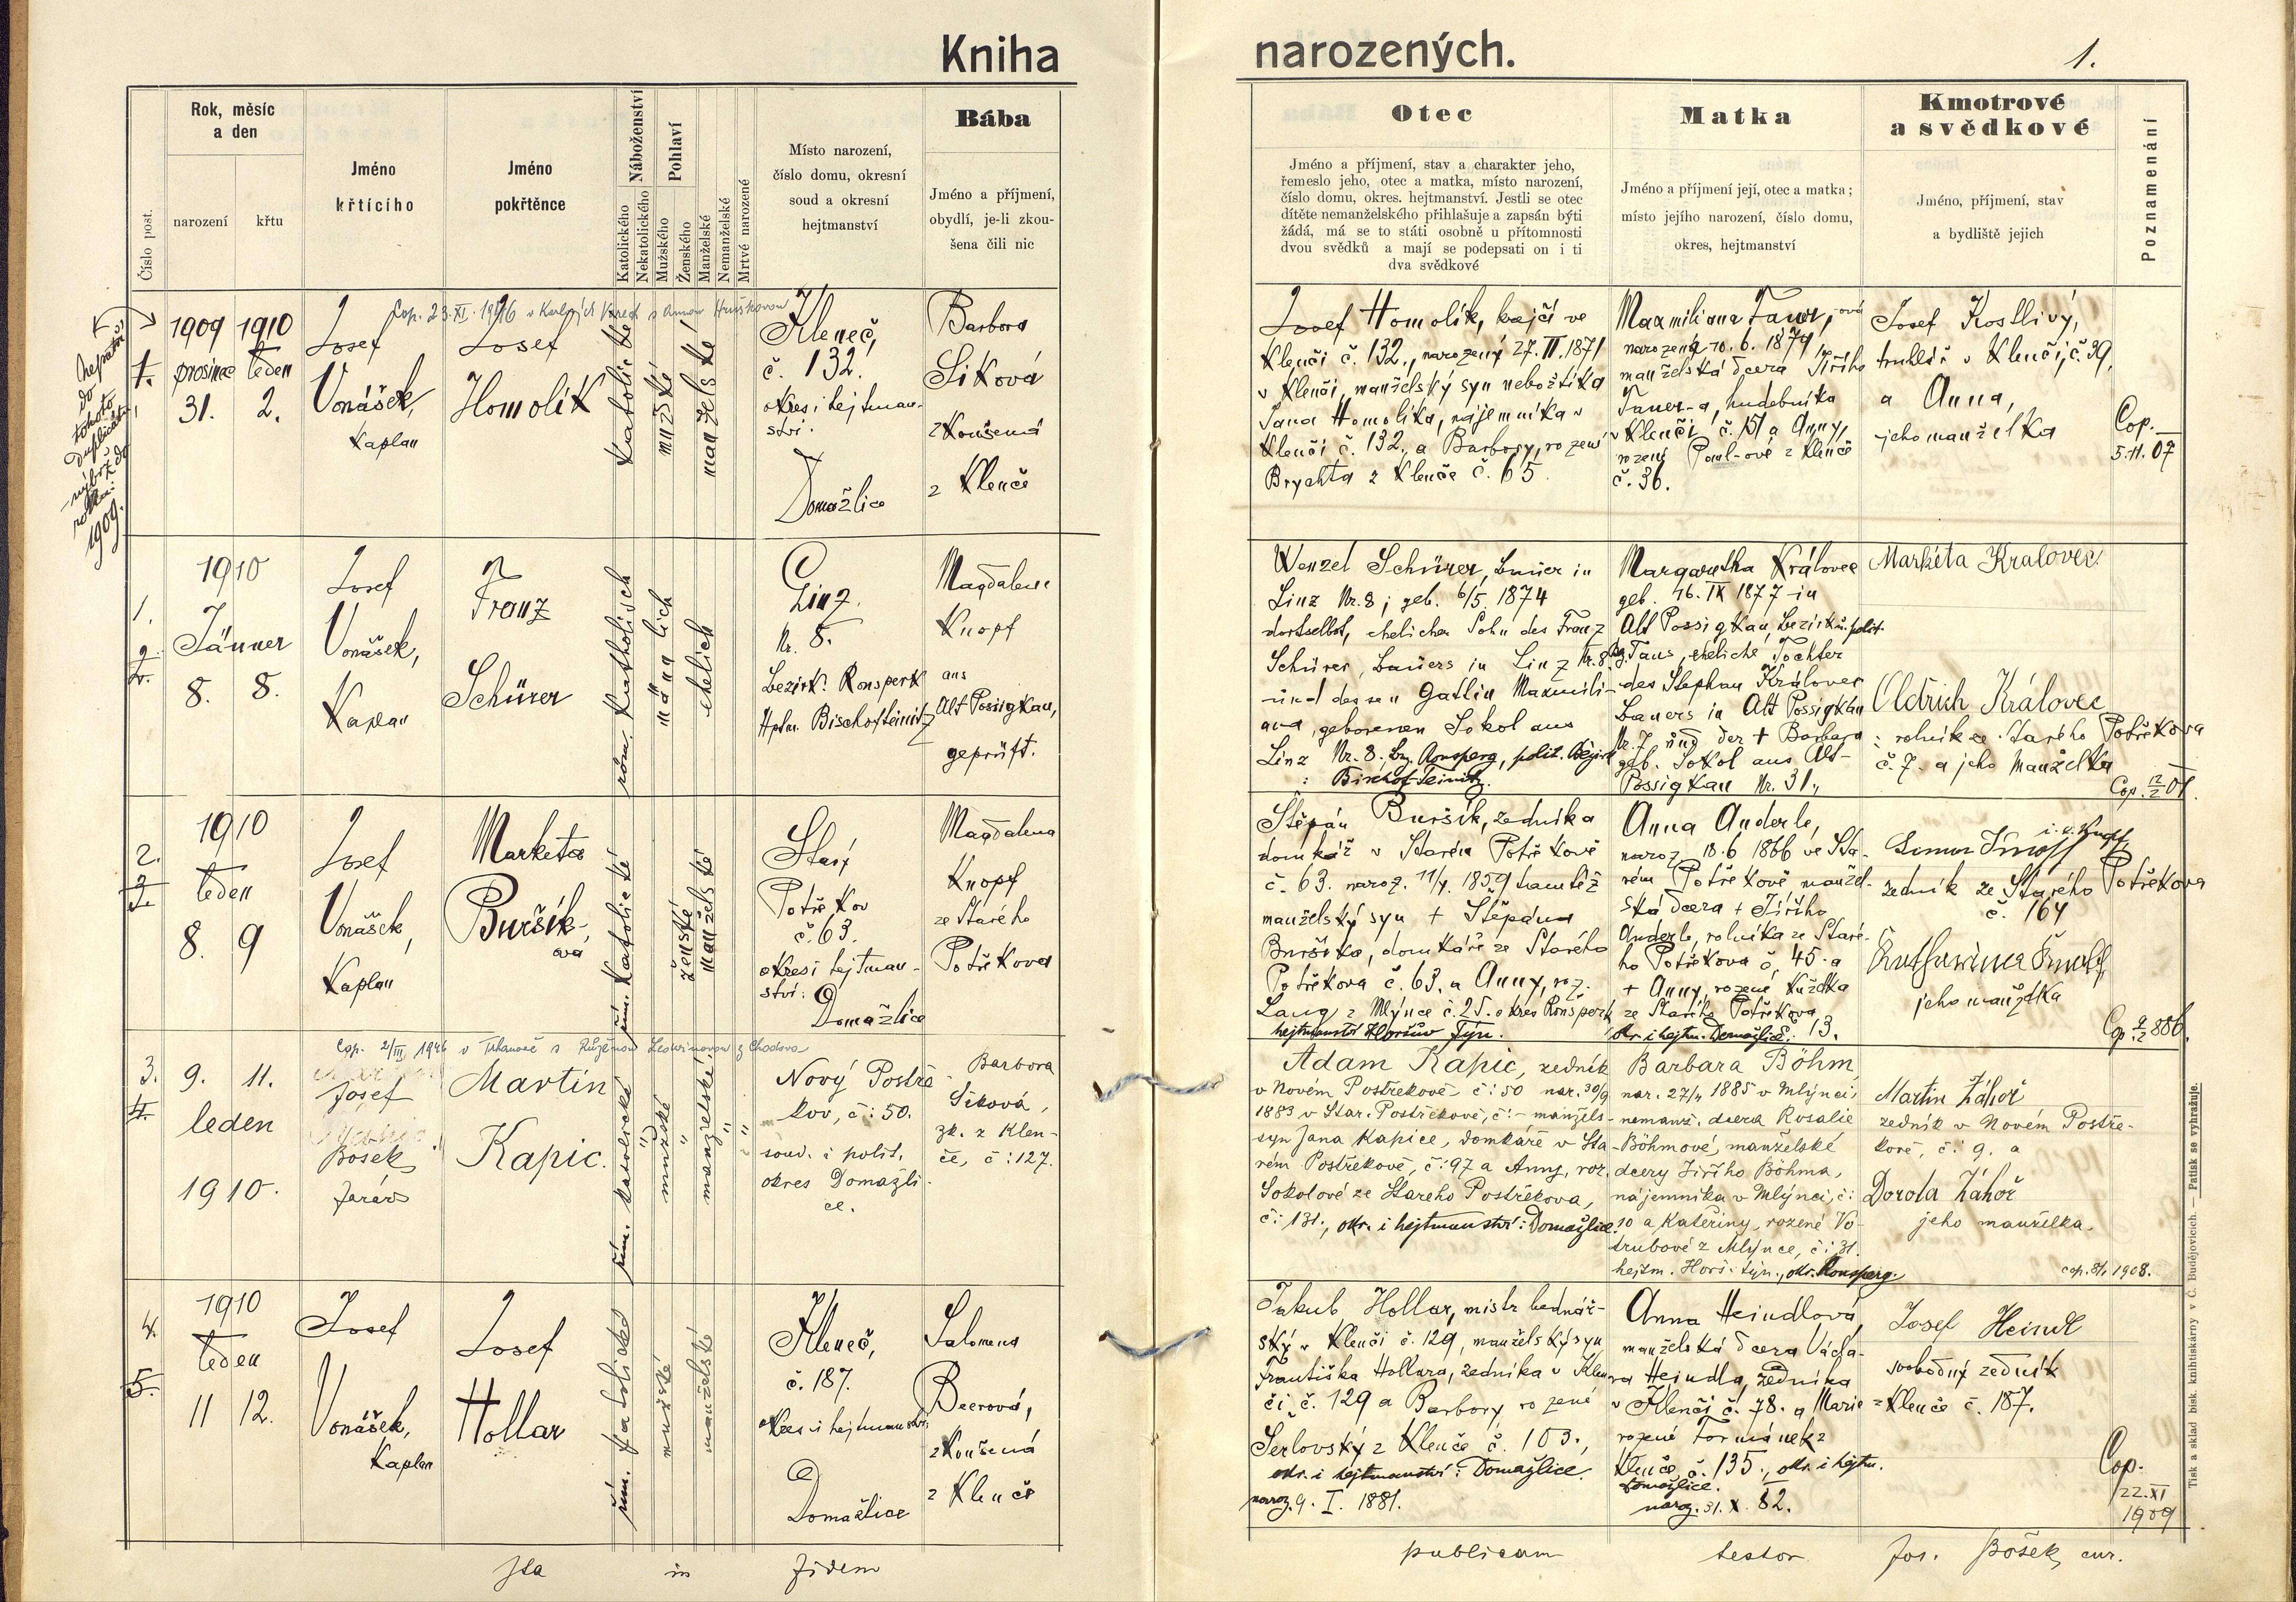 Kniha narozených.
1.
Číslo post.
Rok, měsíc
a den
narození
křtu
Jméno
křtícího
Jméno
pokřtěnce
Náboženství
Katolického
Nekatolického
Pohlaví
Mužského
Ženského
Manželské
Nemanželské
Mrtvě narozené
Místo narození,
číslo domu, okresní
soud a okresní
hejtmanství
Bába
Jméno a příjmení,
obydlí, je-li zkou-
šena čili nic
Otec
Jméno a příjmení, stav a charakter jeho,
řemeslo jeho, otec a matka, místo narození,
číslo domu, okres. hejtmanství. Jestli se otec
dítěte nemanželského přihlašuje a zapsán býti
žádá, má se to státi osobně u přítomnosti
dvou svědků a mají se podepsati on i ti
dva svědkové
Matka
Jméno a příjmení její, otec a matka;
místo jejího narození, číslo domu,
okres, hejtmanství
Kmotrové
a svědkové
Jméno, příjmení, stav
a bydliště jejich
Poznamenání
Nepatří
do
tohoto
duplicátu,
nýbrž do
roku:
1909.
Cop. 23.XI. 1946 v Karlových Varech s Annou Hruškovou
1.
1909 1910
prosinec leden
31. 2.
Josef
Vonášek,
Kaplan
Josef
Homolík
katolické
mužské
manželské
Kleneč,
č. 132.
okres i hejtman-
ství:
Domažlice
Barbora
Siková
zkoušená
z Klenče
Josef Homolík, krajčí ve
Klenčí č. 132., narozený 27.II.1871
v Klenčí, manželský syn nebožtíka
Jana Homolíka, nájemníka v
Klenčí č. 132., a Barbory, rozené
Brychta z Klenče č. 65.
Maxmiliana Tauer, -ová
narozená 10. 6. 1879
manželská dcera Jiřího
Tauer-a, hudebníka
v Klenčí č. 151 a Anny,
rozené Paul-ové z Klenče
č. 36.
Josef Kostlivý,
truhlář v Klenčí, č. 39,
a Anna,
jeho manželka
Cop.
5.11.07
1.
2.
1910
Jänner
8. 8.
Josef
Vonášek,
Kaplan
Franz
Schürer
röm. katholisch
männlich
ehelich
Linz
Nr. 8.
Bezirk: Ronsperk
Hptm. Bischofteinitz
Magdalena
Knopf
aus
Alt Possigkau,
geprüft.
Wenzel Schürer, Bauer in
Linz Nr. 8; geb. 6/5. 1874
dortselbst, ehelicher Sohn des Franz
Schürer, Bauers in Linz Nr. 8
und dessen Gattin Maxmili-
ana, geborenen Sokol aus
Linz Nr. 8. Bez. Ronsperg, polit. Bezirk
: Bischof-Teinitz.
Margaretha Královec
geb. 16. IX 1877 in
Alt Possigkau, Bezirk u. polit.
Bez. Taus, eheliche Tochter
des Stephan Královec
Bauers in Alt Possigkau
Nr. 7 und der + Barbara
geb. Sokol aus Alt-
Possigkau Nr. 31.
Markéta Kralovec
Oldřich Královec
: rolník ze Starého Potřekova
č. 7. a jeho manželka
Cop. 12/2 07.
2.
3.
1910
leden
8. 9
Josef
Vonášek,
Kaplan
Marketa
Buršík-
ova
řím. katolické
ženské
manželské
Starý
Potřekov
č. 63.
okres i hejtman-
ství:
Domažlice
Magdalena
Knopf
ze Starého
Potřekova
Štěpán Buršík, zedníka
domkář v Starém Potřekově
č. 63. naroz. 11/4. 1859 tamtéž
manželský syn + Štěpána
Buršíka, domkáře ze Starého
Potřekova č. 63. a Anny, roz.
Lang z Mlýnce č. 25. okres Ronšperk
hejtmanství Horšův Týn.
Anna Anderle,
naroz. 18. 6 1866 ve Sta-
rém Potřekově manžel-
ská dcera + Jiřího
Anderle, rolníka ze Staré-
ho Potřekova č. 45. a
+ Anny, rozené Kuželka
ze Starého Potřekova
okr. i hejtm. Domažlice. 13.
zedník ze Starého Potřekova
č. 164
jeho manželka
Cop. 9/2 886.
Cop. 2/III 1946 v Trhanově s Růženou Ledvinovou z Chodova
3.
4.
9. 11.
leden
1910.
Josef
Bošek
farář
Martin
Kapic.
řím. katolické
mužské
manželské
Nový Postře-
kov, č: 50.
soud. i polit.
okres Domažli-
ce.
Barbora
Siková,
zk. z Klen-
če, č: 127.
Adam Kapic, zedník
v Novém Postřekově č: 50 nar. 30/9
1883 v Star. Postřekově, č: – manžels-
syn Jana Kapice, domkáře v Sta-
rém Postřekově, č: 97 a Anny, roz.
Sokolové ze Starého Postřekova,
č: 131., okr. i hejtmanství: Domažlice.
Barbara Böhm
nar. 27/4 1885 v Mlýnci,
nemanž. dcera Rosalie
Böhmové, manželské
dcery Jiřího Böhma,
nájemníka v Mlýnci, č:
10 a Kateřiny, rozené Vo-
trubové z Mlýnce, č: 31.
hejtm. Horš. týn., okr. Ronsperg.
Martin Záhoř
zedník v Novém Postře-
kově, č: 9. a
Dorota Záhoř
jeho manželka.
cop. 8/1. 1908.
4.
5.
1910
leden
11 12.
Josef
Vonášek,
Kaplan
Josef
Hollar
řím. katolické
mužské
manželské
Kleneč,
č. 187.
okres i hejtmanství:
Domažlice
Salomena
Beerová,
zkoušená
z Klenče
Jakub Hollar, mistr bednář-
ský v Klenčí č. 129, manželský syn
Františka Hollara, zedníka v Klen-
čí č. 129 a Barbory rozené
Serlovský z Klenče č. 103.,
okr. i hejtmanství: Domažlice.
naroz. 9. I. 1881.
Anna Heindlová,
manželská dcera Václa-
va Heindla, zedníka
v Klenčí č. 78. a Marie
rozené Formánek z
Klenče č. 135., okr. i hejtm.
Domažlice.
naroz. 31. X. 82.
Josef Heindl
svobodný zedník
z Klenče č. 187.
Cop.
22.XI
1909
Ita in fidem publicam testor Jos. Bošek, cur.
Tisk a sklad bisk. knihtiskárny v Č. Budějovicích. — Patisk se vyhražuje.